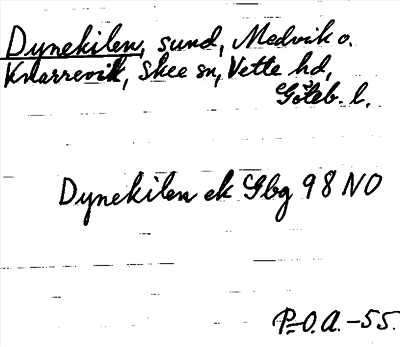 Dynekilen, sund, Medvik o.
Knarrevik, Skee sn, Vette hd,
Göteb. l.
Dynekilen ek Gbg 98 NO
P-O.A.-55.